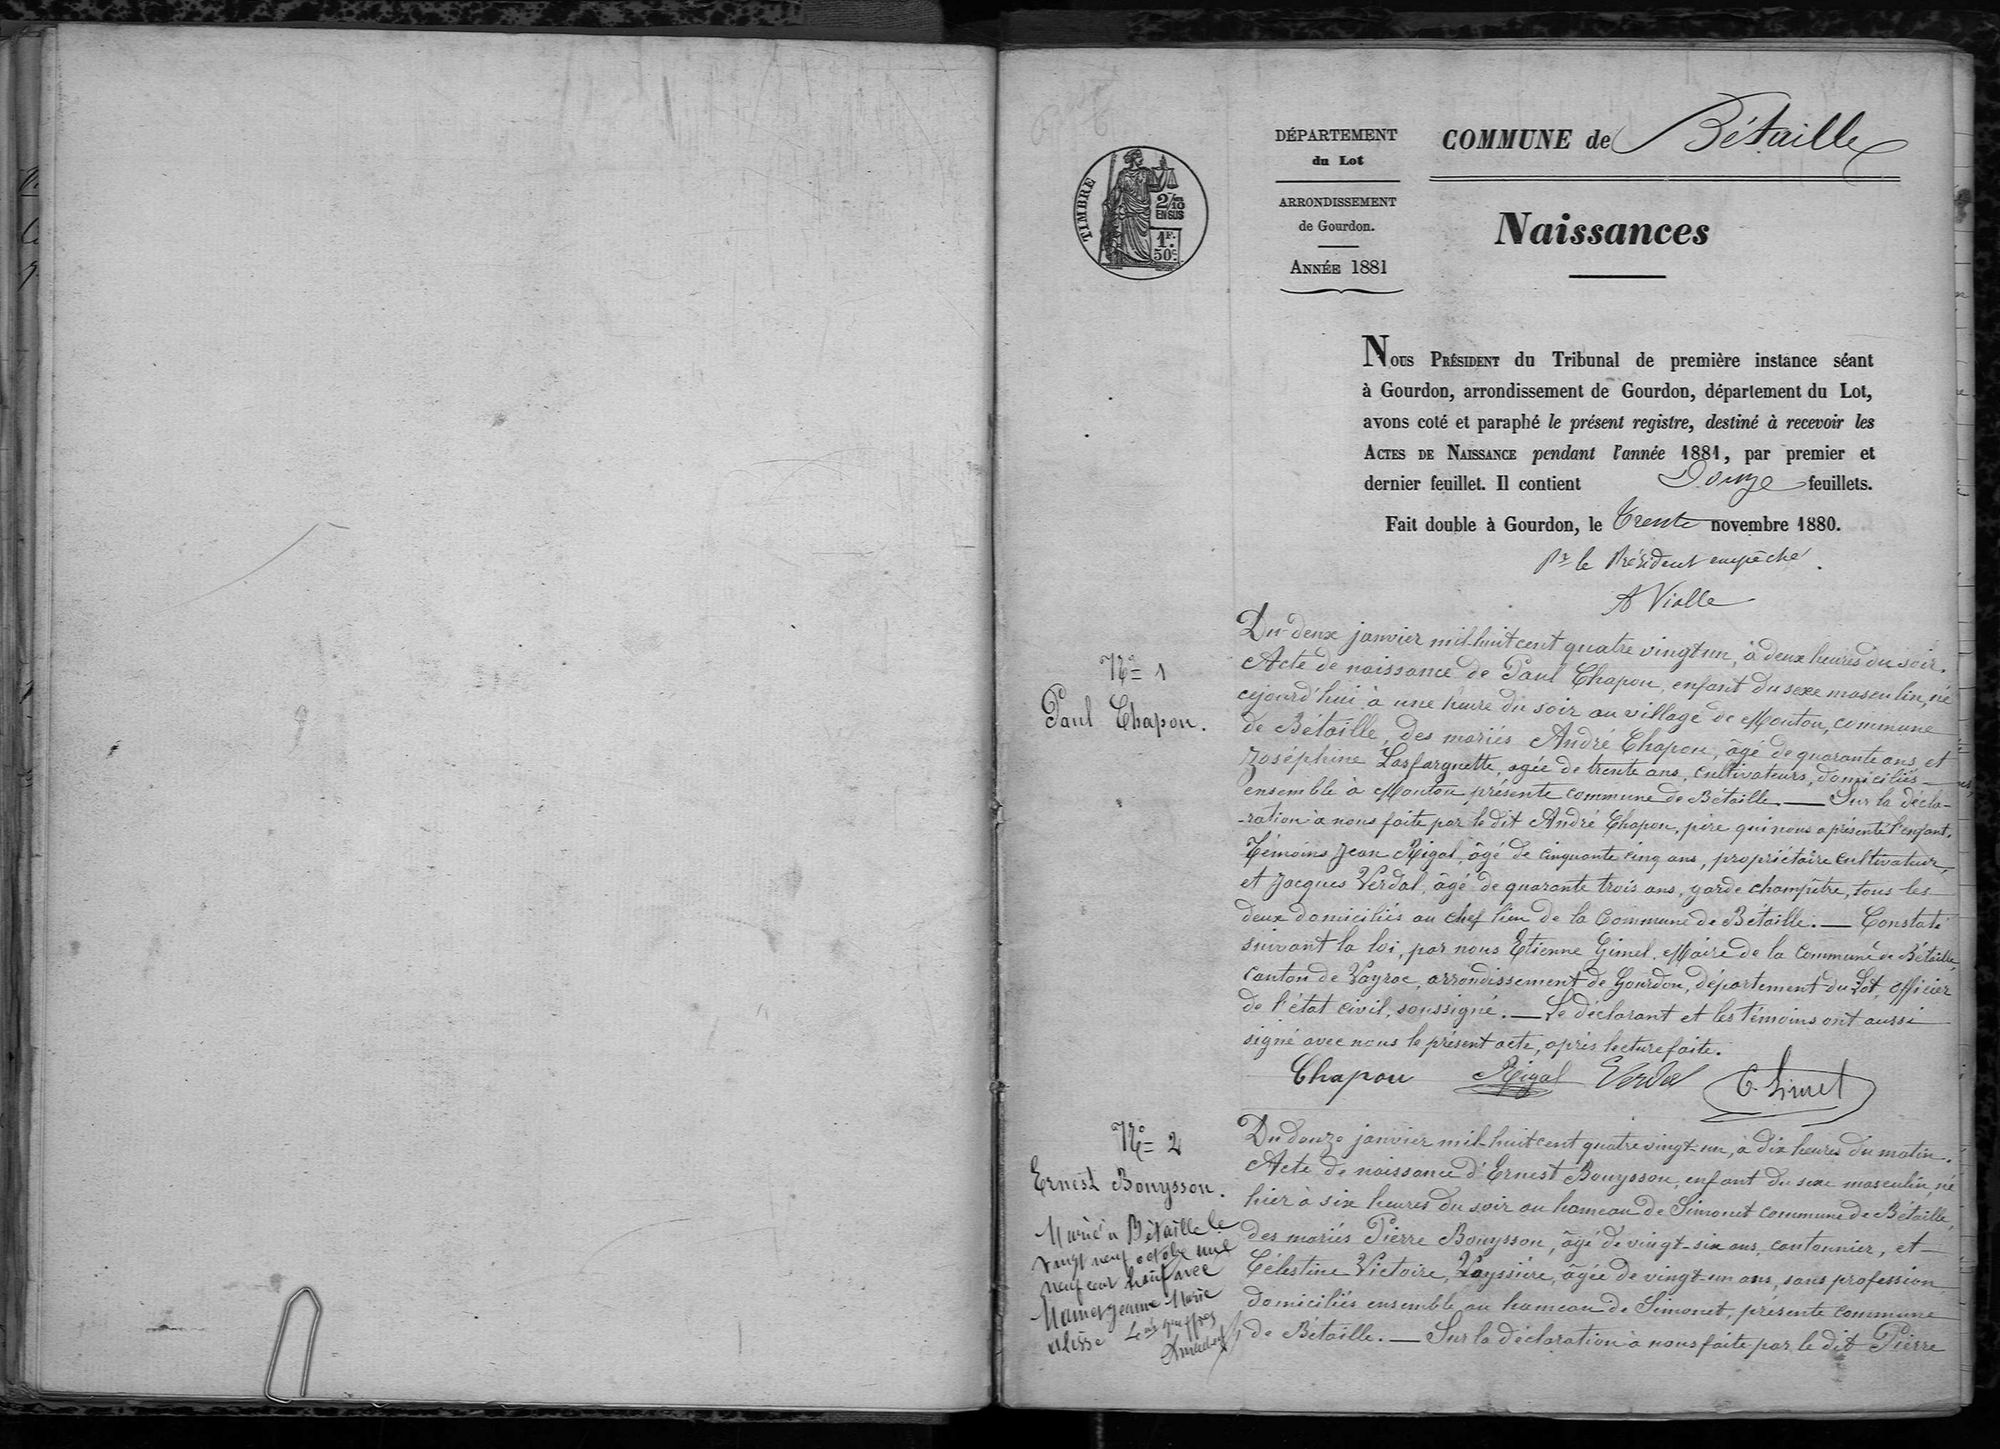 DÉPARTEMENT
du Lot
ARRONDISSEMENT
de Gourdon.
ANNÉE 1881
COMMUNE de Bétaille
Naissances
TIMBRE
2/10 EN SUS
1F. 50c
NOUS PRÉSIDENT du Tribunal de première instance séant
à Gourdon, arrondissement de Gourdon, département du Lot,
avons coté et paraphé le présent registre, destiné à recevoir les
ACTES DE NAISSANCE pendant l'année 1881, par premier et
dernier feuillet. Il contient Douze feuillets.
Fait double à Gourdon, le Trente novembre 1880.
Pr le Président empêché.
A Vialle
No 1
Paul Chapou.
Du deux janvier mil huit cent quatre vingt un, à deux heures du soir.
Acte de naissance de Paul Chapou, enfant du sexe masculin, né
cejourd'hui à une heure du soir au village de Mouton, commune
de Bétaille, des mariés André Chapou, âgé de quarante ans et
Joséphine Lasfargnette, agée de trente ans, cultivateurs, domiciliés
ensemble à Mouton présente commune de Bétaille. — Sur la décla-
-ration à nous faite par le dit André Chapou, père qui nous a présenté l'enfant.
Témoins Jean Rigal, âgé de cinquante cinq ans, propriétaire cultivateur,
et Jacques Verdal, âgé de quarante trois ans, garde champêtre, tous les
deux domiciliés au chef lieu de la Commune de Bétaille. — Constaté
suivant la loi, par nous Etienne Gimel, Maire de la Commune de Bétaille,
canton de Vayrac, arrondissement de Gourdon, département du Lot, officier
de l'état civil, soussigné. — Le déclarant et les témoins ont aussi
signé avec nous le présent acte, après lecture faite.
Chapou Rigal Verdal E. Gimel
No 2
Ernest Bouysson.
Marié à Bétaille le
vingt neuf octobre mil
neuf cent huit avec
Jeanne Marie
Du douze janvier mil-huit cent quatre vingt-un, à dix heures du matin.
Acte de naissance d'Ernest Bouysson, enfant du sexe masculin, né
hier à six heures du soir au hameau de Simonet commune de Bétaille,
des mariés Pierre Bouysson, âgé de vingt-six ans, cantonnier, et
Célestine Victoire, Vayssière, âgée de vingt-un ans, sans profession,
domiciliés ensemble au hameau de Simonet, présente commune
de Bétaille. — Sur la déclaration à nous faite par le dit Pierre